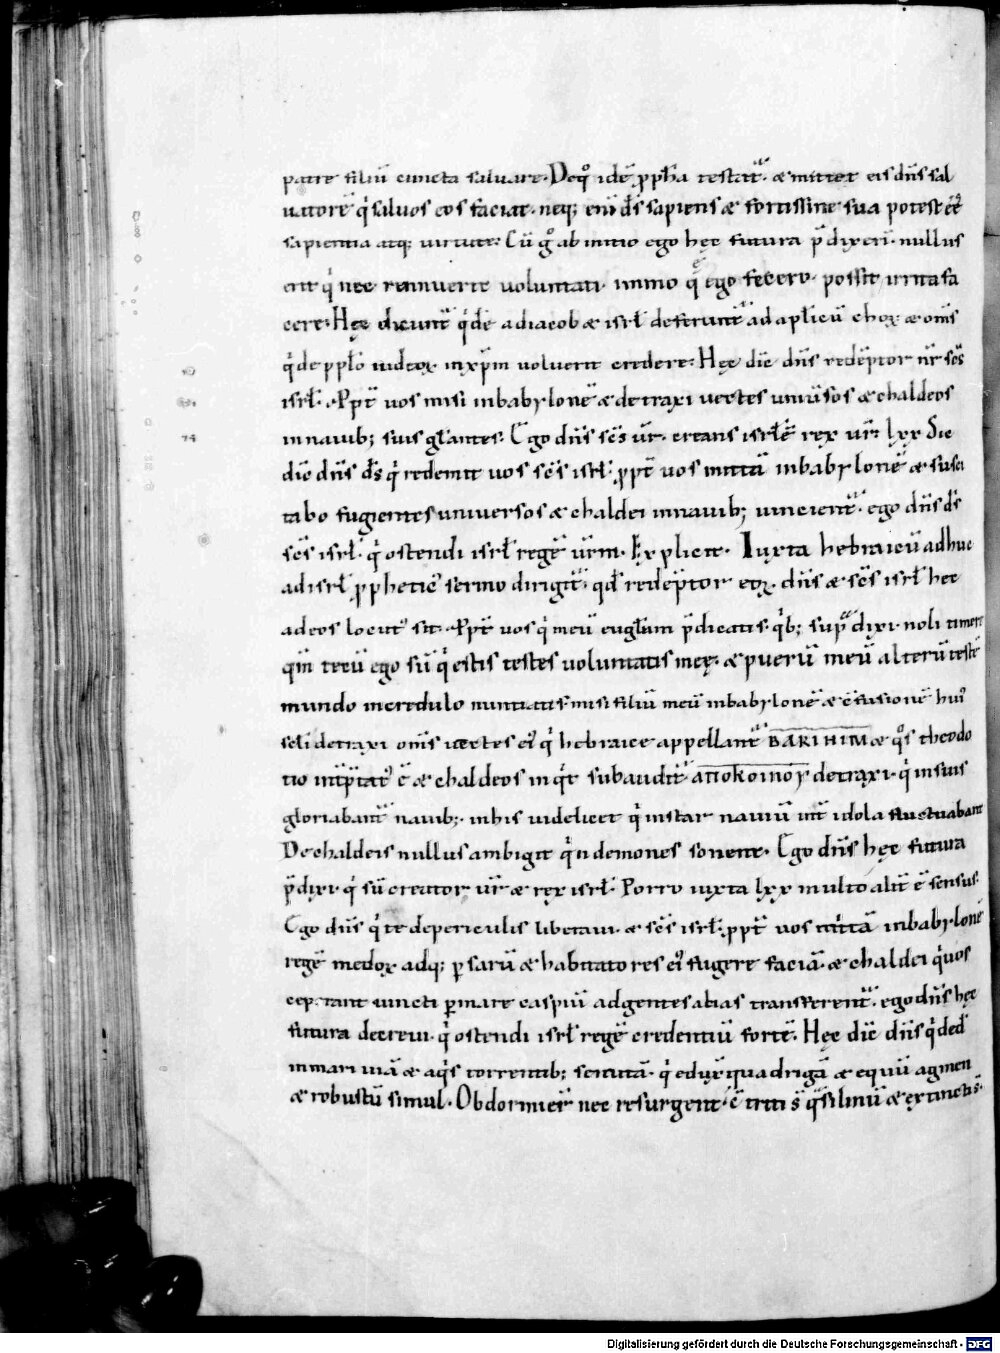 patre filiū cuncta saluare. Deq̊ idē ꝓph̄a testat᷒. & mittet eis dn̄s sal
uatorē qͥ saluos eos faciat. neq; enī ds̄ sapiens & fortissine sua potest eē
sapientia atq; uirtute. Cū g̊ ab initio ego hęc futura p̄dixerī. nullus
erit qͥ nec renuuerte uoluntati. immo q̄ ego fecero. possit irrita fa
cere. Hęc dicunt᷒ qͥdē ad iacob & isrl̄ deferunt᷒ ad apl̄icū choꝝ & om̄s
qͥ de ppl̄o iudeoꝝ in xp̄m uoluerit credere. Hęc dic̄ dn̄s redēptor nr̄ sc̄s
isrl̄. Ppt̄ uos misi in babylonē & detraxi uectes uniūsos & chaldeos
in nauib; suis gl̄antes. Ego dn̄s sc̄s ur̄. creans isrl̄ē rex ur̄. lxx Sic
dic̄ dn̄s ds̄ qͥ redemit uos sc̄s isrl̄. ꝓpt̄ uos mittā in babylonē & susci
tabo fugientes uniuersos & chaldei in nauib; uincient᷒. ego dn̄s ds̄
sc̄s isrl̄. qͥ ostendi isrl̄ regē ur̄m. Explicit. Iuxta hebraicū adhuc
ad isrl̄ ꝓpheticꝰ sermo dirigit᷒. qd̄ redēptor eoꝝ. dn̄s & sc̄s isrl̄ hec
ad eos locutꝰ sit. Ppt̄ uos qͥ meū eugl̄ium p̄dicatis. qͥb; sup᷒ dixi. noli timere
qm̄ tecū ego sū qͥ estis testes uoluntatis meę. & puerū meū alterū testē
mundo incredulo nuntiatis. misi filiū meū in babylonē & c̄fusionē huiꝰ
sc̄li detraxi om̄s uectes eiꝰ qͥ hebraice appellant᷒ BARIHIM & q̊s theodo
tio int̄p̄tatꝰ ē & chaldeos inqͥt subaudit᷒ αποκοινογ detraxi. qͥ in suis
gloriabant᷒ nauib;. in his uidelicet qͥ instar nauiū int̄ idola fluctuabant
De chaldeis nullus ambigit qͥn demones sonent. Ego dn̄s hęc futura
p̄dixi. qͥ sū creator ur̄ & rex isrl̄. Porro iuxta lxx multo alit̄ ē sensus.
Ego dn̄s qͥ te de periculis liberaui. & sc̄s isrl̄. ꝓpt̄ uos mittā in babylonē
regē medoꝝ adq; ꝑsarū & habitatores eiꝰ fugere faciā. & chaldei qͥ uos
ceperant uincti ꝑ mare caspiū ad gentes alias transferent᷒. ego dn̄s hęc
futura decreui. qͥ ostendi isrl̄ regē credentiū fortē. Hęc dic̄ dn̄s qͥ ded̄
in mari uiā & aqͥs torrentib; semitā. qͥ eduxͥ quadrigā & equū agmen
& robustū simul. Obdormier̄ nec resurgent. c̄triti s̄ q̄si linū & extincti s̄.
Digitalisierung gefördert durch die Deutsche Forschungsgemeinschaft - DFG